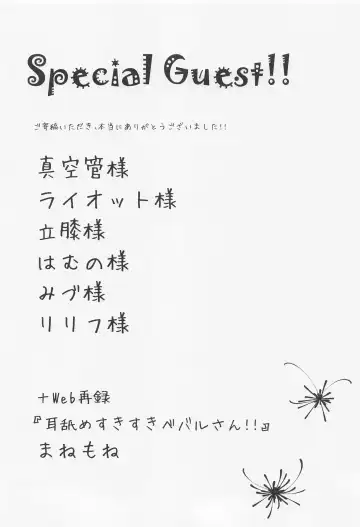 Special Guest!!
ご寄稿いただき、本当にありがとうございました!!
真空管様
ライオット様
立膝様
はむの様
みづ様
リリフ様
+Web再録
『耳舐めすきすきベバルさん!!』
まねもね